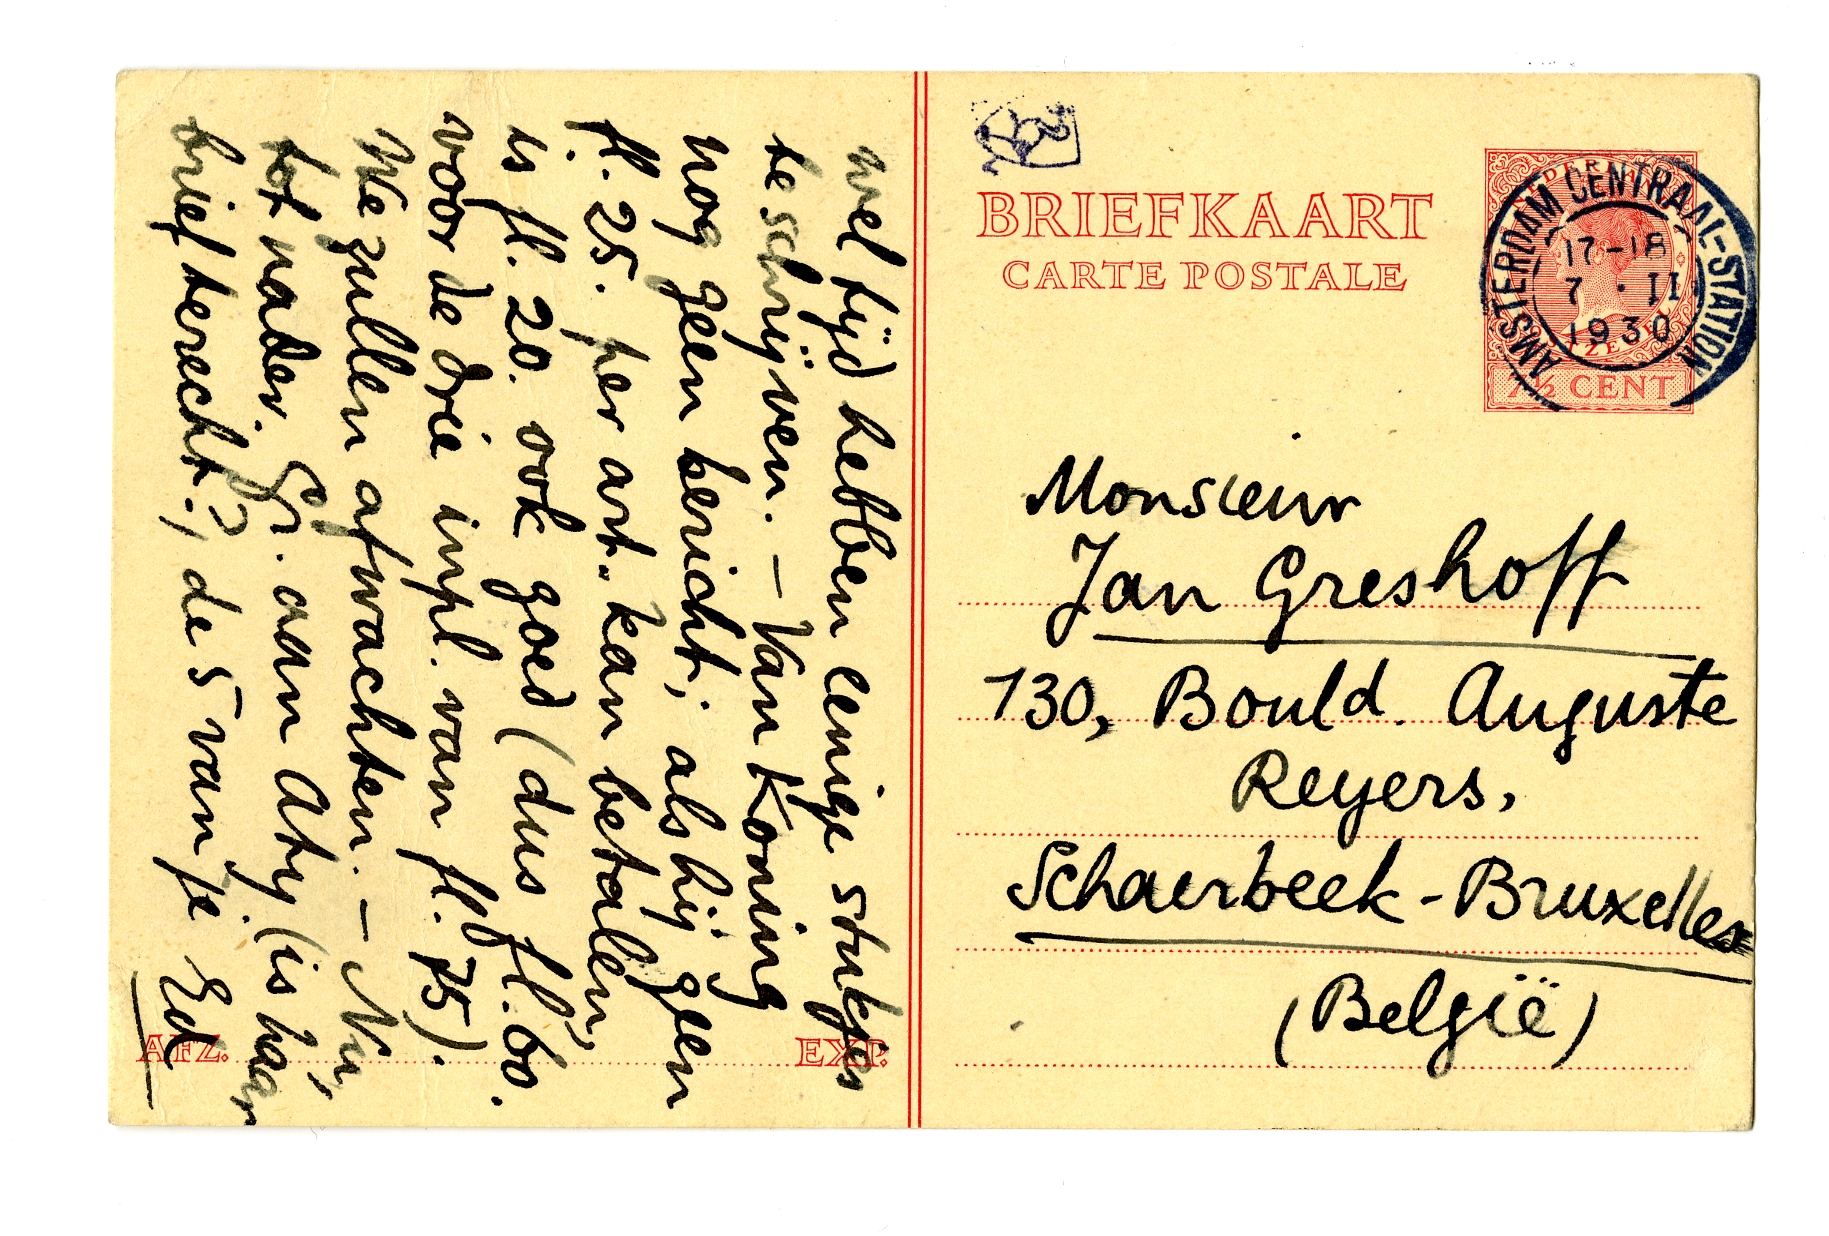 wel tijd hebben eenige stukjes
te schrijven. – Van Koning
nog geen bericht; als hij geen
fl. 25. per art. kan betalen,
is fl. 20. ook goed (dus fl. 60.
voor de drie inpl. van fl. 75).
We zullen afwachten. – Nu,
tot nader. Gr. aan Aty (is haar
brief terecht?), de 5 van je
Ed
AFZ.
EXP.
BRIEFKAART
CARTE POSTALE
NEDERLAND
7½ CENT
AMSTERDAM CENTRAAL-STATION
17-18
7 · II
1930
Monsieur
Jan Greshoff
130, Bould. Auguste
Reyers,
Schaerbeek-Bruxelles
(België)